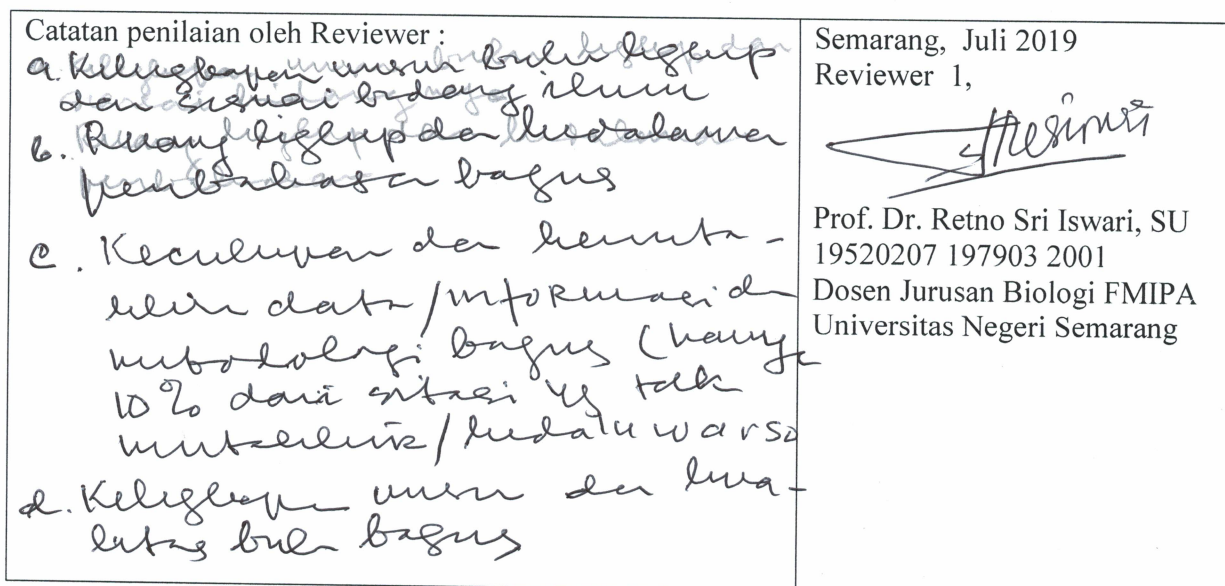 Catatan penilaian oleh Reviewer :
a. Kelengkapan unsur buku lengkap
dan sesuai bidang ilmu
b. Ruang lingkup dan kedalaman
pembahasan bagus
c. Kecukupan dan kemuta-
khiran data/informasi dan
metodologi bagus (hanya
10% dari sitasi yg tdk
mutakhir/kadaluwarsa
d. Kelengkapan unsur dan kua-
litas buku bagus
Semarang, Juli 2019
Reviewer 1,
Prof. Dr. Retno Sri Iswari, SU
19520207 197903 2001
Dosen Jurusan Biologi FMIPA
Universitas Negeri Semarang